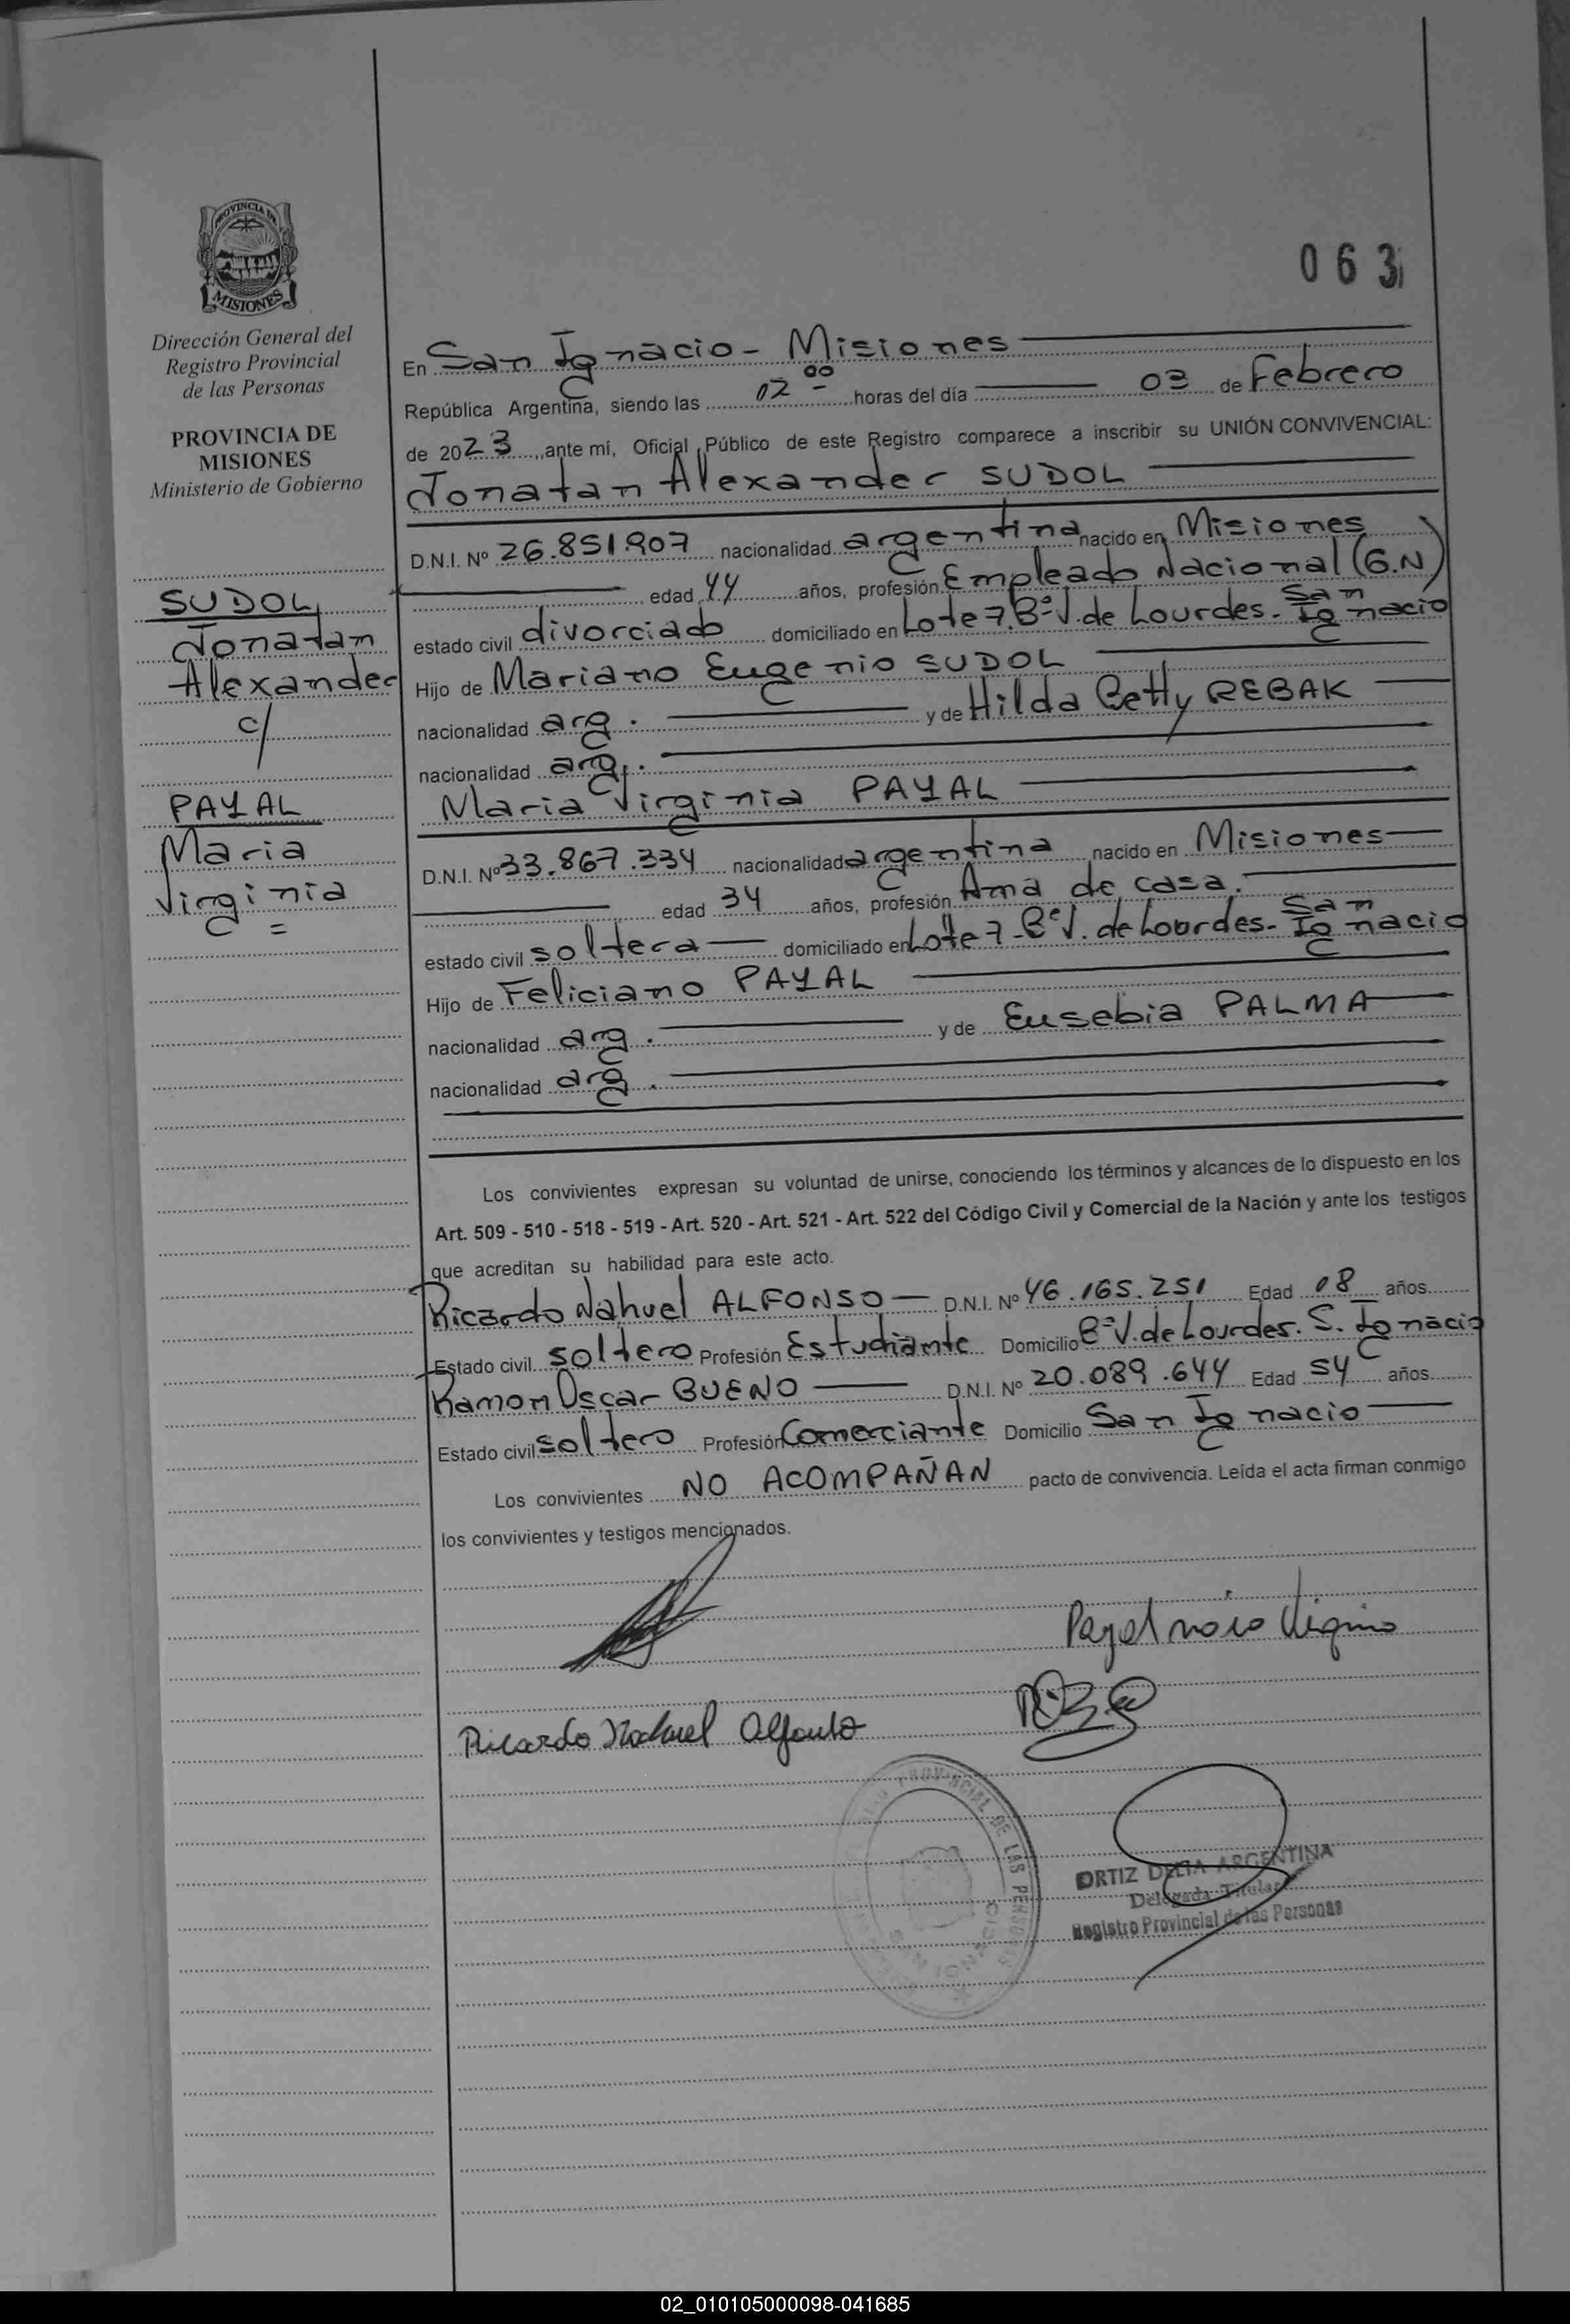 PROVINCIA DE
MISIONES
Dirección General del
Registro Provincial
de las Personas
PROVINCIA DE
MISIONES
Ministerio de Gobierno
SUDOL
Jonatan
Alexander
c/
PAYAL
Maria
Virginia
=
063
En San Ignacio - Misiones
República Argentina, siendo las 02 00 horas del día 03 de Febrero
de 2023, ante mí, Oficial Público de este Registro comparece a inscribir su UNIÓN CONVIVENCIAL:
Jonatan Alexander SUDOL
D.N.I. Nº 26.851.907 nacionalidad argentina nacido en Misiones
edad 44 años, profesión Empleado Nacional (G.N)
estado civil divorciado domiciliado en Lote 7. Bº V. de Lourdes - San Ignacio
Hijo de Mariano Eugenio SUDOL
nacionalidad arg. y de Hilda Betty REBAK
nacionalidad arg.
Maria Virginia PAYAL
D.N.I. Nº 33.867.334 nacionalidad argentina nacido en Misiones
edad 34 años, profesión Ama de casa.
estado civil soltera domiciliado en Lote 7 - Bº V. de Lourdes - San Ignacio
Hijo de Feliciano PAYAL
nacionalidad arg. y de Eusebia PALMA
nacionalidad arg.
Los convivientes expresan su voluntad de unirse, conociendo los términos y alcances de lo dispuesto en los
Art. 509 - 510 - 518 - 519 - Art. 520 - Art. 521 - Art. 522 del Código Civil y Comercial de la Nación y ante los testigos
que acreditan su habilidad para este acto.
Ricardo Nahuel ALFONSO D.N.I. Nº 46.165.251 Edad 18 años
Estado civil soltero Profesión Estudiante Domicilio Bº V. de Lourdes. S. Ignacio
Ramon Oscar BUENO D.N.I. Nº 20.089.644 Edad 54 años
Estado civil soltero Profesión Comerciante Domicilio San Ignacio
Los convivientes NO ACOMPAÑAN pacto de convivencia. Leída el acta firman conmigo
los convivientes y testigos mencionados.
Payal Maria Virginia
Ricardo Nahuel Alfonso
PROVINCIAL DE LAS PERSONAS
SAN IGNACIO
ORTIZ DELIA ARGENTINA
Delegada Titular
Registro Provincial de las Personas
02_010105000098-041685